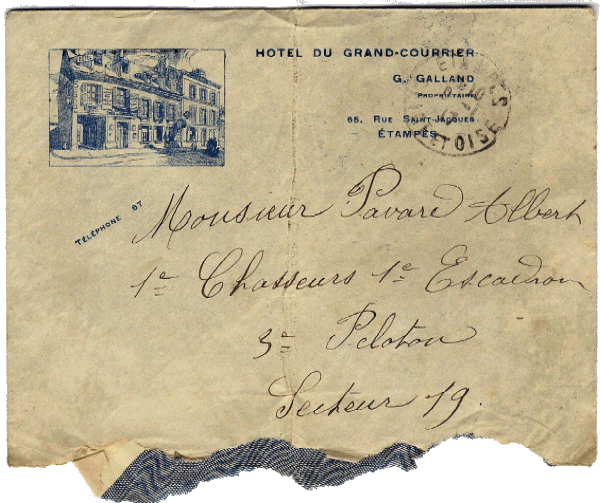 HOTEL DU GRAND-COURRIER
G. GALLAND
PROPRIÉTAIRE
65, RUE SAINT-JACQUES
ÉTAMPES
ET OISE
TÉLÉPHONE 67
Monsieur Pavard Albert
1e Chasseurs 1e Escadron
3e Peloton
Secteur 19.